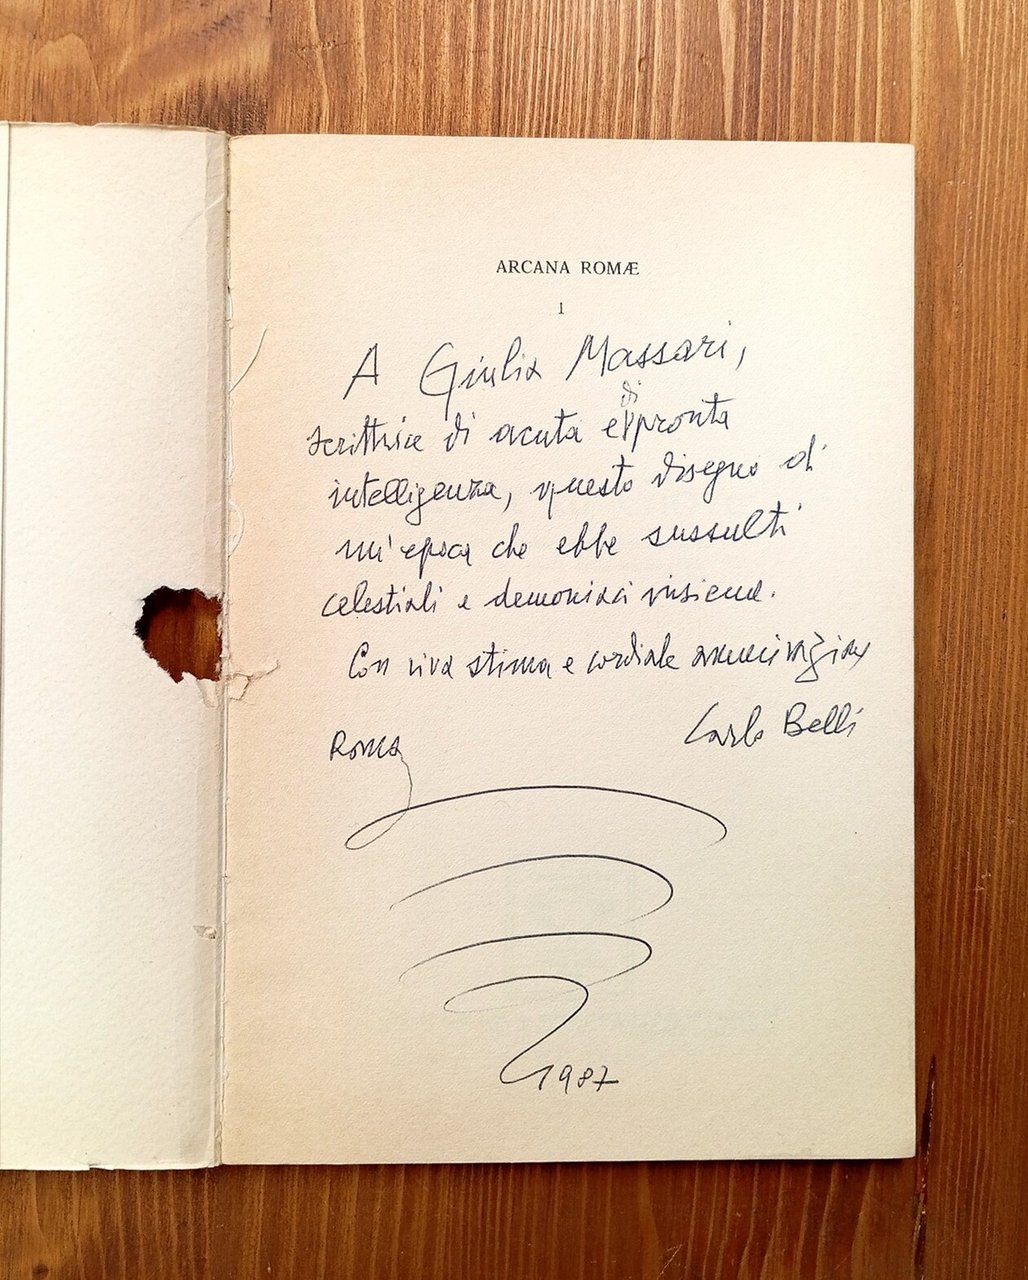 ARCANA ROMÆ
1
A Giulia Massari,
di
scrittrice di acuta e pronta
intelligenza, questo disegno di
un'epoca che ebbe sussulti
celestiali e demoniaci insieme.
Con viva stima e cordiale ammirazione
Carlo Belli
Roma
1987